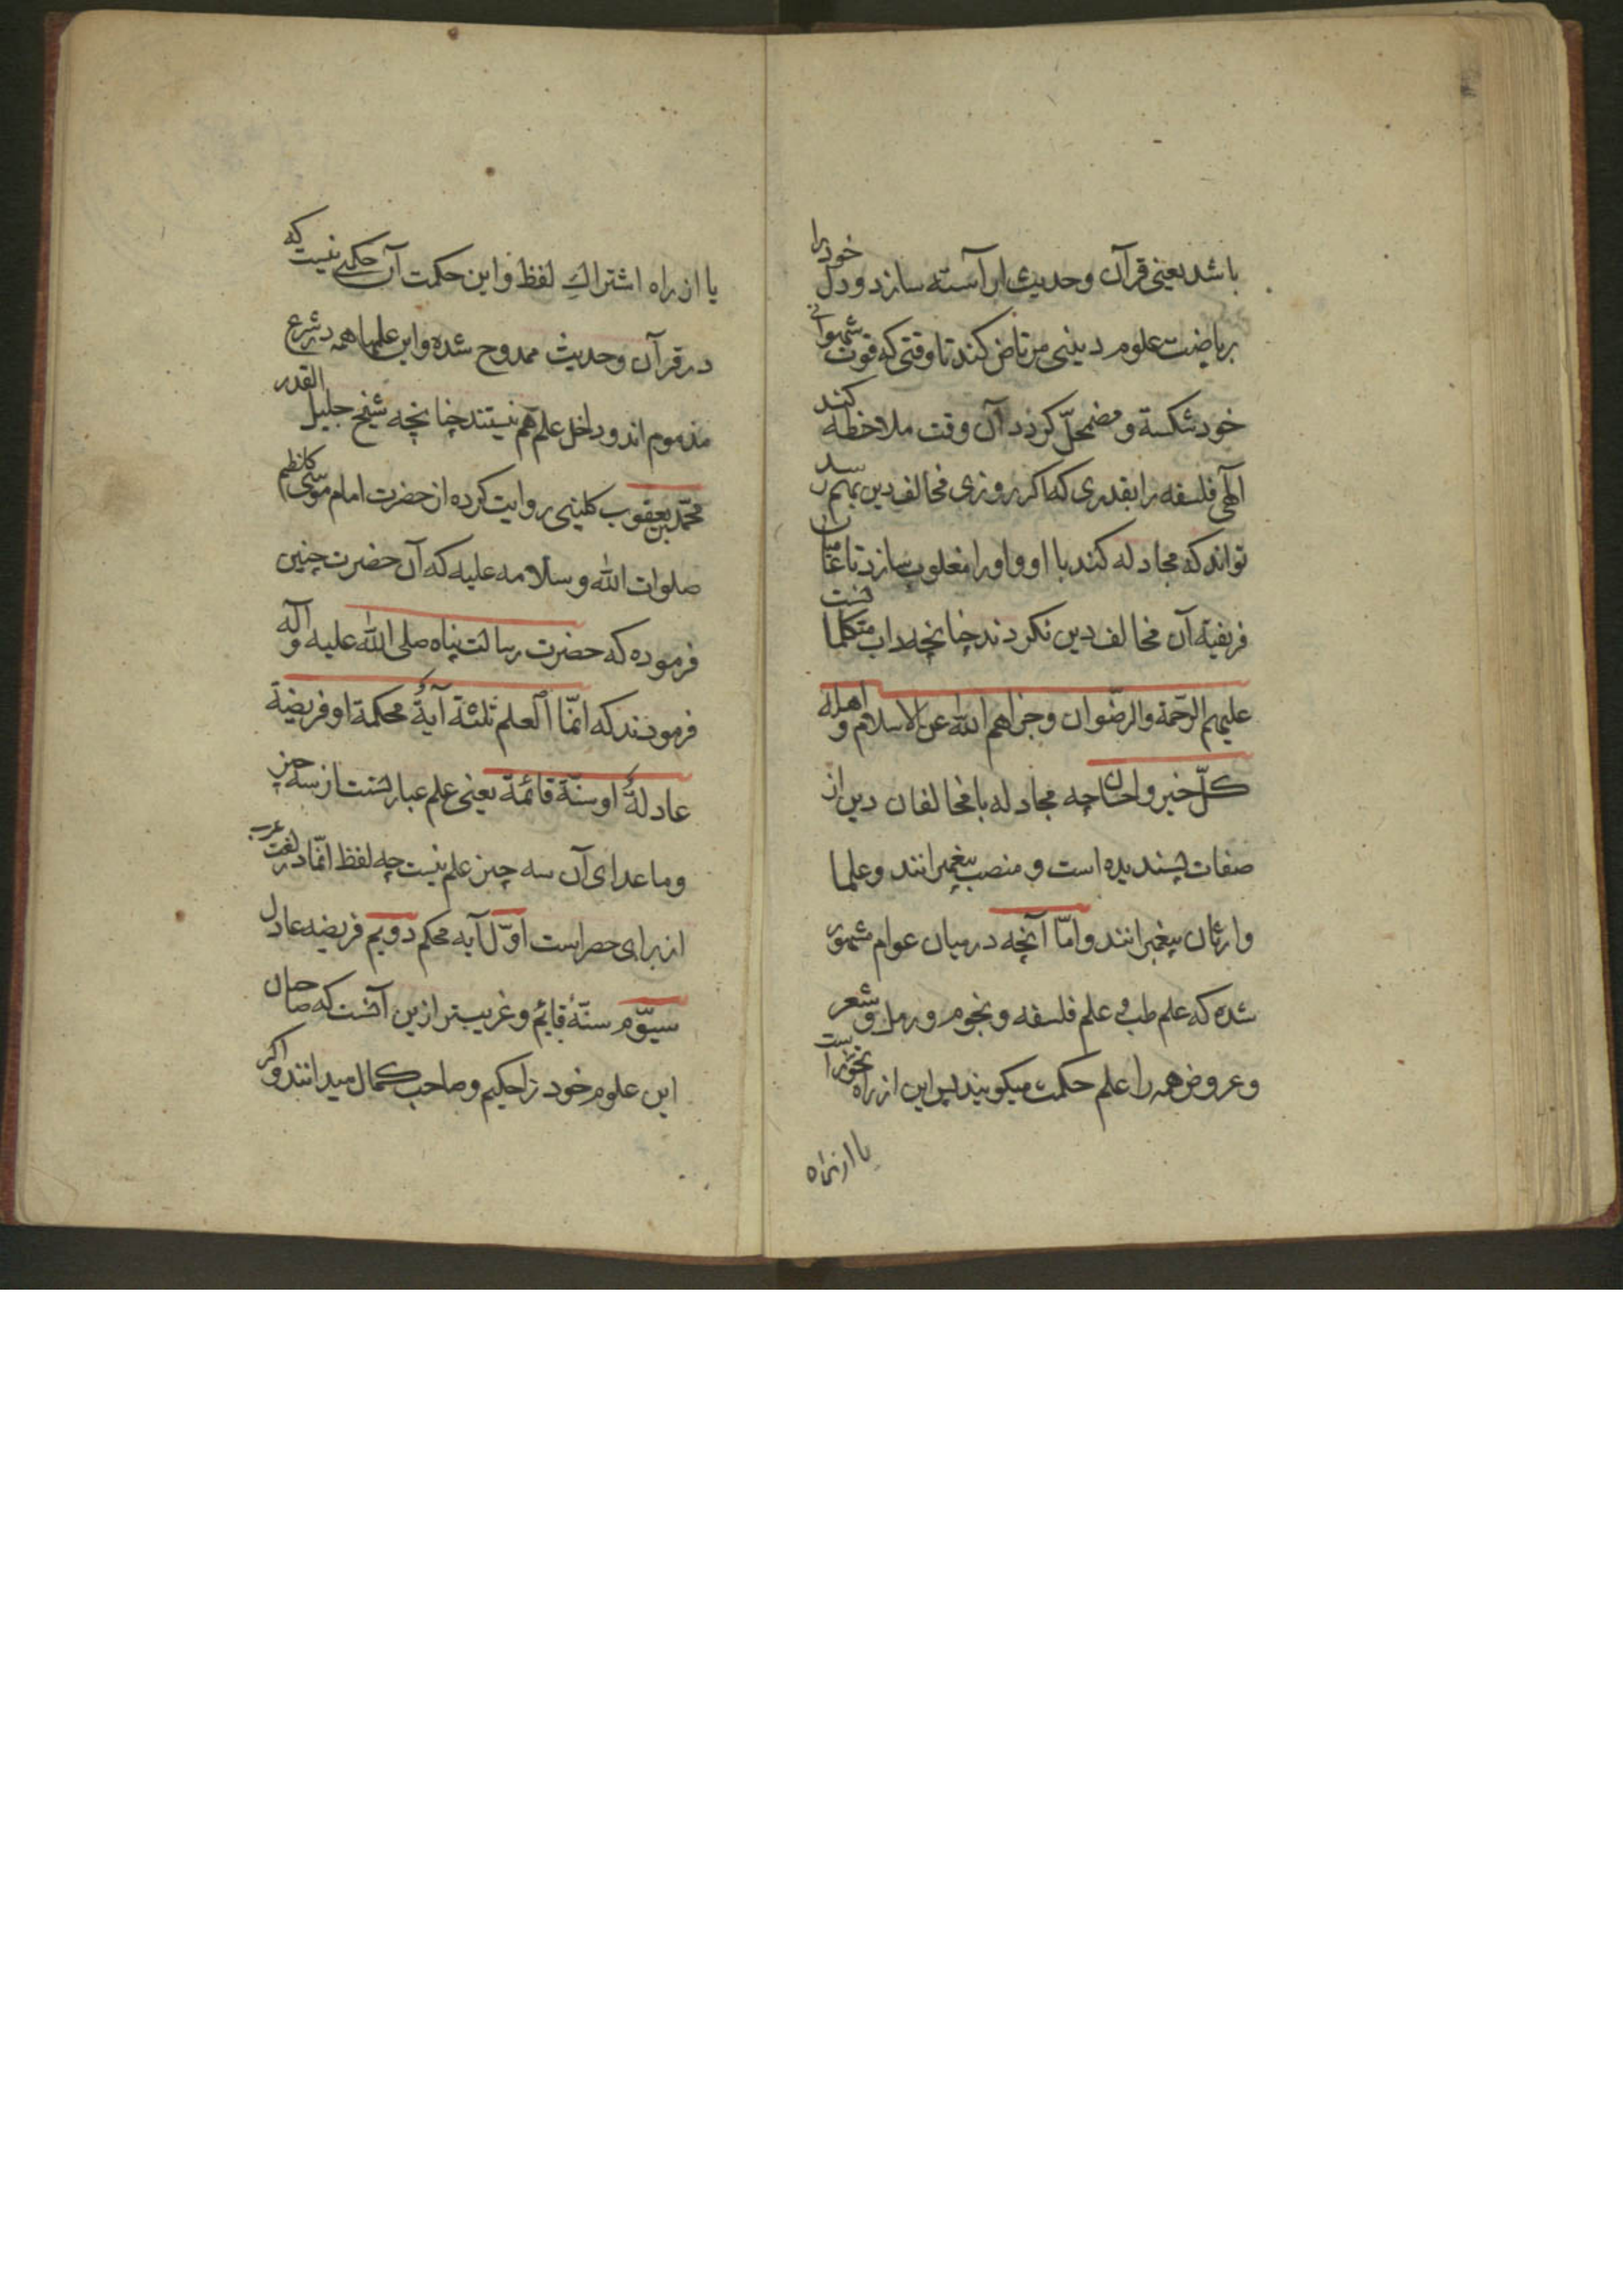 باشد یعنی قرآن و حدیث ابر آسته سازد و دل خود را
بریاضت علوم دینی مرتاض کند تا وقتی که قوت شهوانی
خود شکسته و مضمحلّ کردد آن وقت ملاحظه کند
الٓهی فلسفه را بقدری که اکر روزی مخالف دین بهم رسد
تواند که مجادله کند با او و او را مغلوب سازد تا عامیان
فریفتهٔ آن مخالف دین نکردند چنانچه داب متکلما نست
علیهم الرّحمة والرضّوان وجزاهم اللّه عن الاسلام و اهله
کلّ خیر واحسان چه مجادله با مخالفان دین از
صفات پسندیده است و منصب پیغمبرانند و علما
وارثان پیغمبرانند و امّا آنچه در میان عوام مشهور
شده که علم طب و علم فلسفه و نجوم و رمل و شعر
و عروض همه را علم حکمت میکویند پس این از راه تجوّز است
یا از راه
یا از راه اشتراكِ لفظ و این حکمت آن حکمتی نیست که
در قرآن و حدیث ممدوح شده و این علمها همه در شرع
مذموم اند و داخل علم هم نیستند چنانچه شیخ جلیل القدر
محمّد بن یعقوب کلینی روایت کرده از حضرت امام موسی کاظم
صلوات اللّه و سلامه علیه که آن حضرت چنین
فرموده که حضرت رسالت پناه صلی اللّه علیه و آله
فرمودند که انمّا العلم ثلثة آیةٌ محکمة او فریضة
عادلةٌ او سنّة قائمة یعنی علم عبارتست از سه چیز
و ماعدای آن سه چیز علم نیست چه لفظ انمّا در لغت عرب
از برای حصر است اوّل آیه محکم دویم فریضه عادل
سیوّم سنّهٔ قایم و غریب تر ازین آنست که صاحبان
این علوم خود را حکیم و صاحب کمال میدانند و اکر